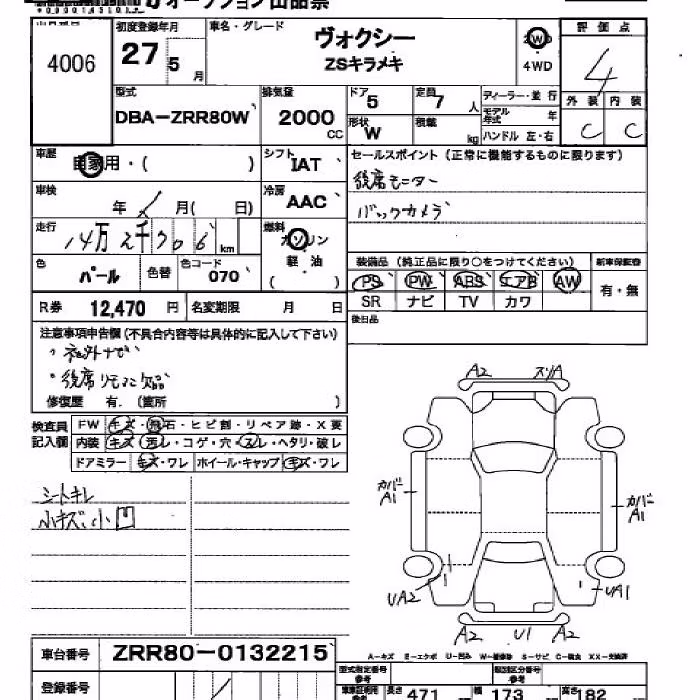 オークション出品票
4006
初度登録年月
27 5 月
車名・グレード
ヴォクシー
ZSキラメキ
2WD
4WD
評価点
4
型式
DBA-ZRR80W
排気量
2000 CC
ドア 5
定員 7 人
形状 W
積載 kg
ディーラー・並行
モデル年式 年
ハンドル 左・右
外装 内装
C C
車歴
自家用・( )
シフト
IAT
セールスポイント (正常に機能するものに限ります)
後席モニター
バックカメラ
車検
年 月( 日)
冷房
AAC
走行
14万2千706 km
燃料
ガソリン
軽・油
( )
色
パール
色替
色コード
070
装備品 (純正品に限り○をつけてください)
新車保証書
PS PW ABS エアB AW
SR ナビ TV カワ
有・無
R券 12,470 円
名変期限 月 日
後日品
注意事項申告欄 (不具合内容等は具体的に記入して下さい)
・社外ナビ
・後席リモコン欠品
修復歴 有. (箇所 )
検査員
記入欄
FW キズ・飛石・ヒビ割・リペア跡・X要
内装 キズ・汚レ・コゲ・穴・スレ・ヘタリ・破レ
ドアミラー キズ・ワレ ホイール・キャップ キズ・ワレ
シートキレ
小キズ、小凹
A2 スリA
カバーA1
カバーA1
UA2
UA1
A2 U1 A2
車台番号 ZRR80-0132215
登録番号
A-キズ E-エクボ U-凹み W-補修跡 S-サビ C-腐食 XX-交換済
型式指定番号
参考
類別区分番号
参考
長さ 471 幅 173 高さ 182